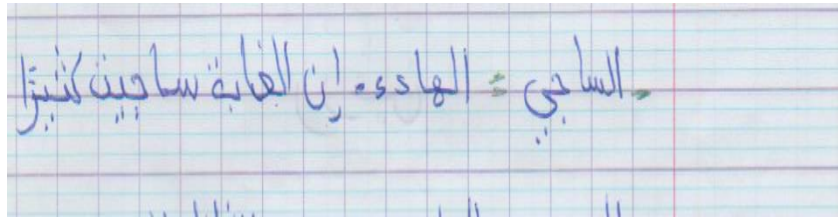 - الساجي = الهادء. إن الغابة ساجية كثيرًا